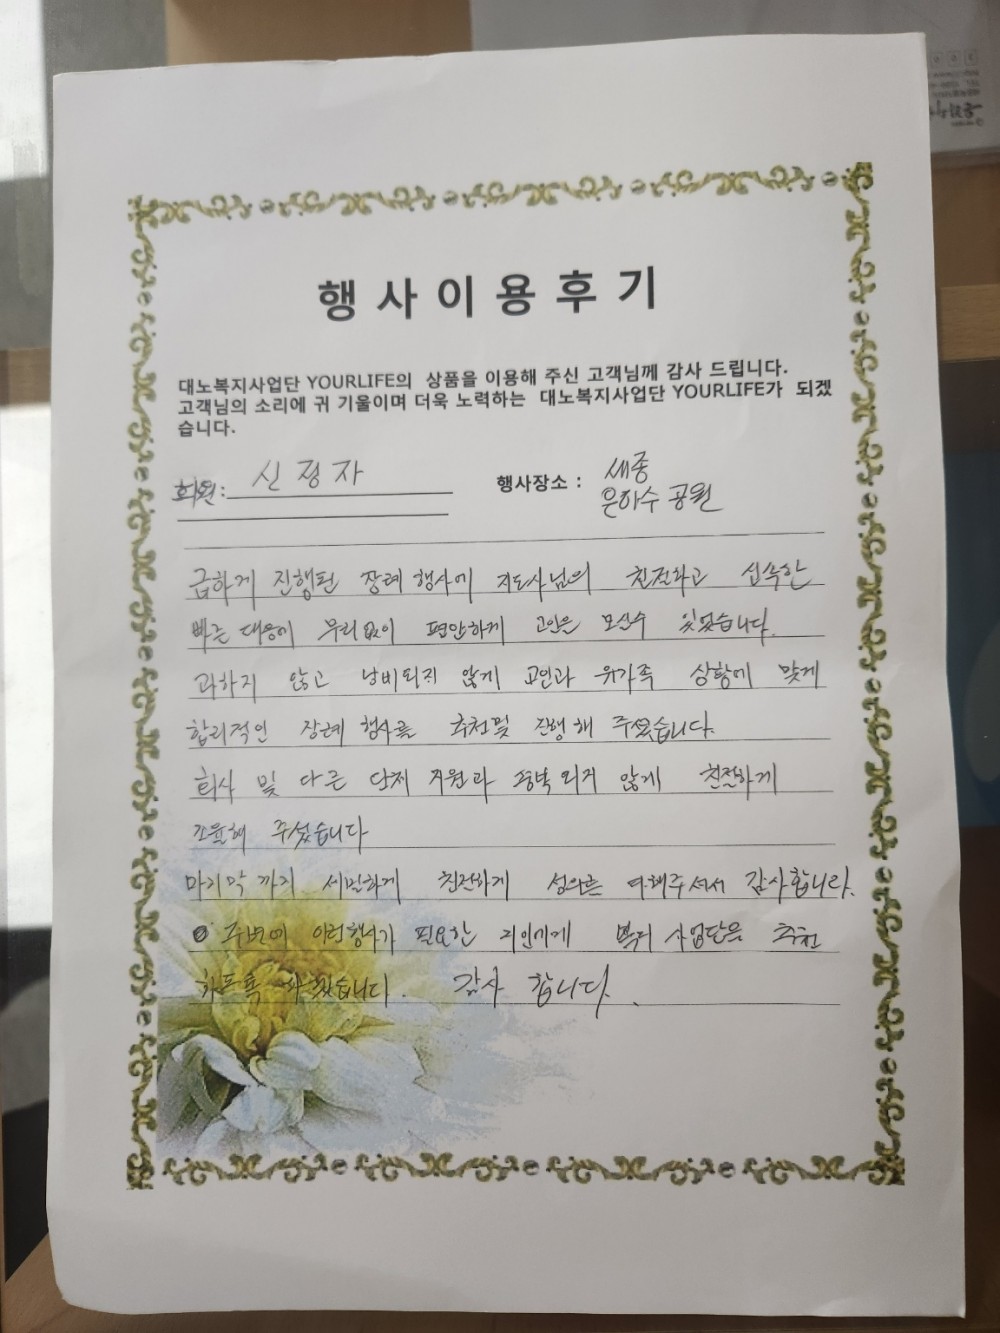 행사이용후기
대노복지사업단 YOURLIFE의 상품을 이용해 주신 고객님께 감사 드립니다.
고객님의 소리에 귀 기울이며 더욱 노력하는 대노복지사업단 YOURLIFE가 되겠
습니다.
회원: 신정자
행사장소 : 세종
은하수 공원
급하게 진행된 장례 행사에 지도사님의 친절하고 신속한
빠른 대응에 무리없이 편안하게 고인을 모실수 있었습니다.
과하지 않고 낭비되지 않게 고인과 유가족 상황에 맞게
합리적인 장례 행사를 추천및 진행해 주셨습니다.
회사 및 다른 단체 직원과 중복되지 않게 친절하게
조율해 주셨습니다
마지막까지 세밀하게 친절하게 성의를 다해주셔서 감사합니다.
주변에 이런행사가 필요한 지인에게 복지 사업단을 추천
하도록 하겠습니다. 감사 합니다.